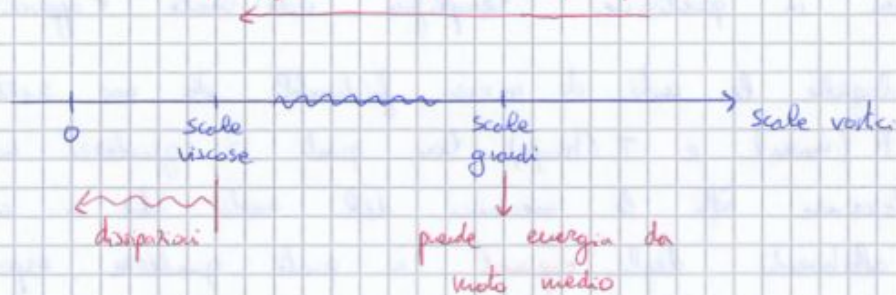 0
scale
viscose
scale
grandi
scale vortici
dissipazioni
prende energia da
moto medio